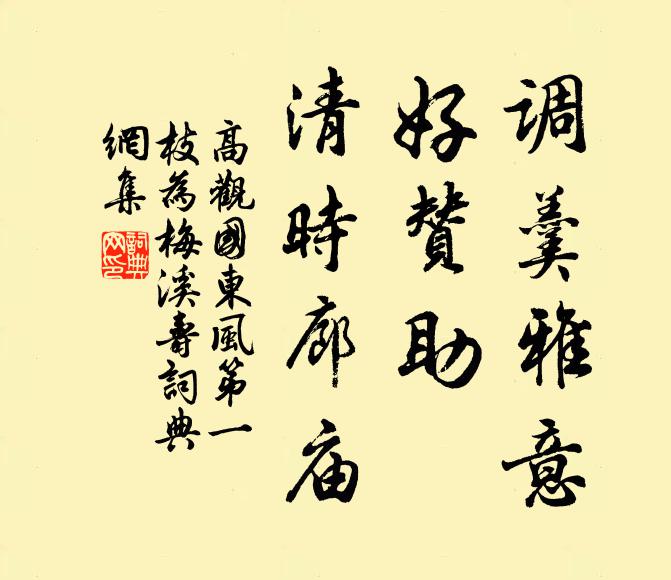 调羹雅意
好赞助
清時廊庙
高觀國東風第一
枝為梅溪壽詞典
網集
詞典
网印